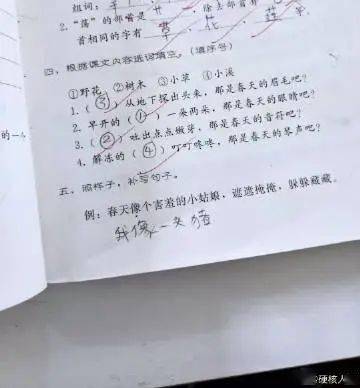 组词：
2."荡"的部首是 艹 ，除去部首有
首相同的字有 草、花、莲 等。
四、根据课文内容选词填空。（填序号）
①野花 ②树木 ③小草 ④小溪
1.（ ③ ）从地下探出头来，那是春天的眉毛吧？
2. 早开的（ ① ）一朵两朵，那是春天的眼睛吧？
3.（ ② ）吐出点点嫩芽，那是春天的音符吧？
4. 解冻的（ ④ ）叮叮咚咚，那是春天的琴声吧？
五、照样子，补写句子。
例：春天像个害羞的小姑娘，遮遮掩掩，躲躲藏藏。
我像一头猪
的一
硬核人